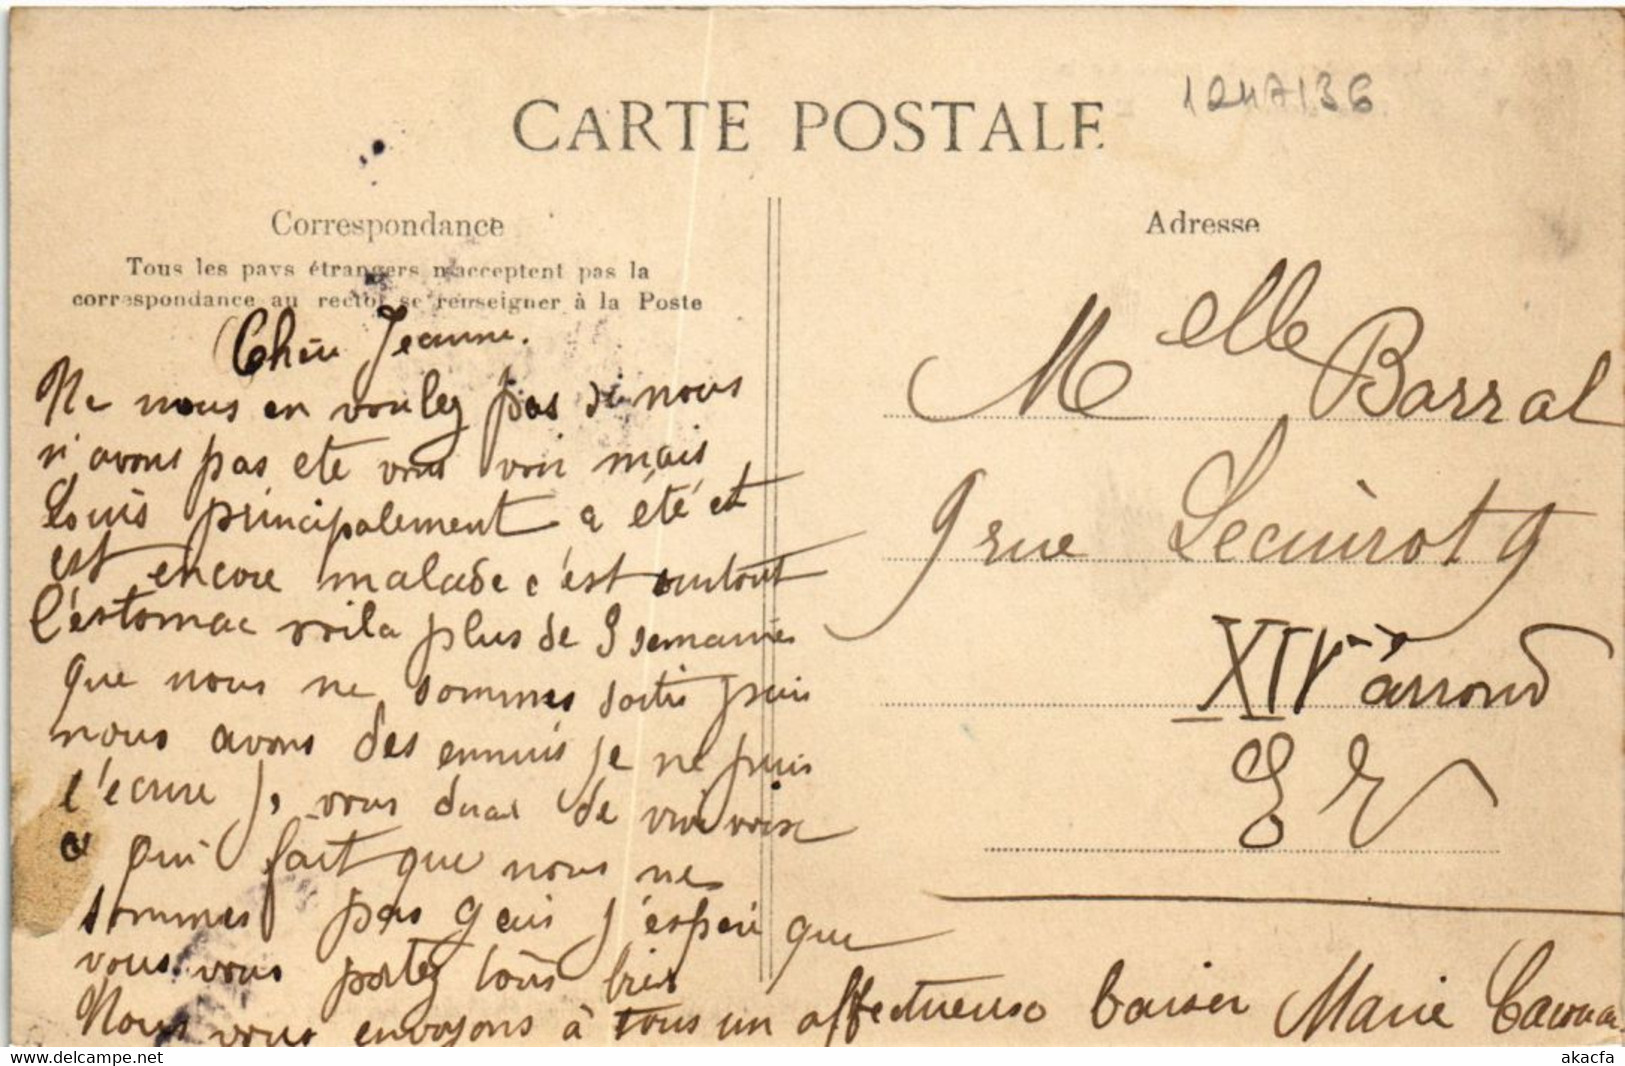 1247136
CARTE POSTALE
Correspondance
Tous les pays étrangers n'acceptent pas la
correspondance au recto: se renseigner à la Poste
Adresse
Chère Jeanne.
Ne nous en voulez pas si nous
n'avons pas ete vous voir mais
Louis principalement a été et
est encore malade c'est surtout
l'estomac voila plus de 3 semaines
que nous ne sommes sortis puis
nous avons des ennuis je ne puis
l'ecrire je vous dirai de vive voix
ce qui fait que nous ne
sommes pas gais j'espère que
vous vous portez tous bien
Nous vous envoyons à tous un affectueuse baiser Marie
Melle Barral
9 rue Lecuirot 9
XIVe arrond
E V
akacfa
www.delcampe.net